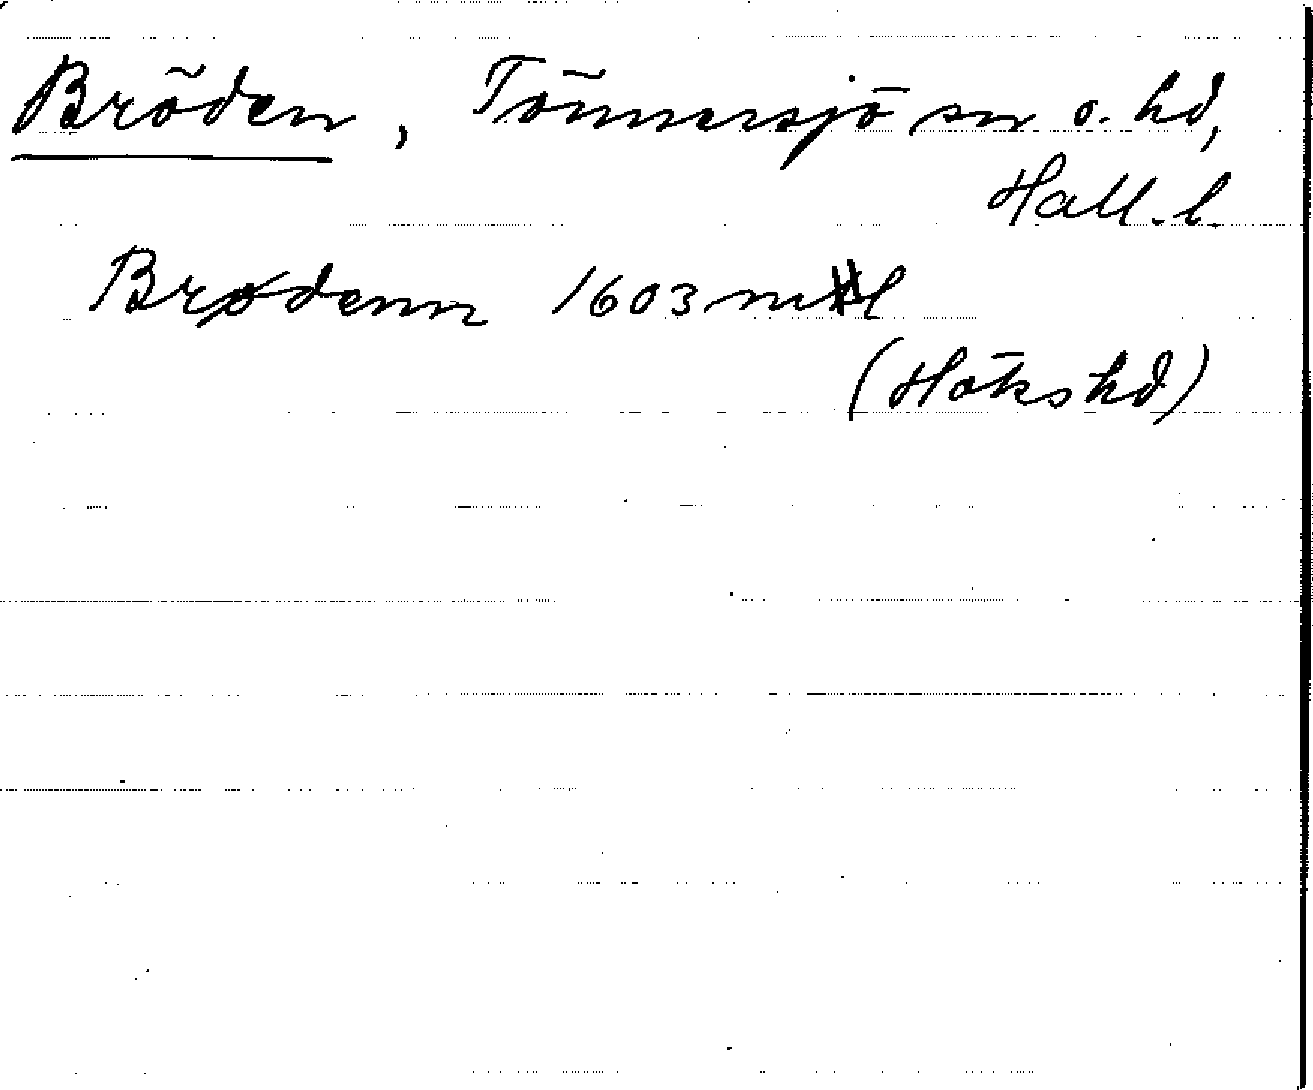 Bröden, Tönnersjö sn o. hd,
Hall. l.
Brødenn 1603
(Höks hd)